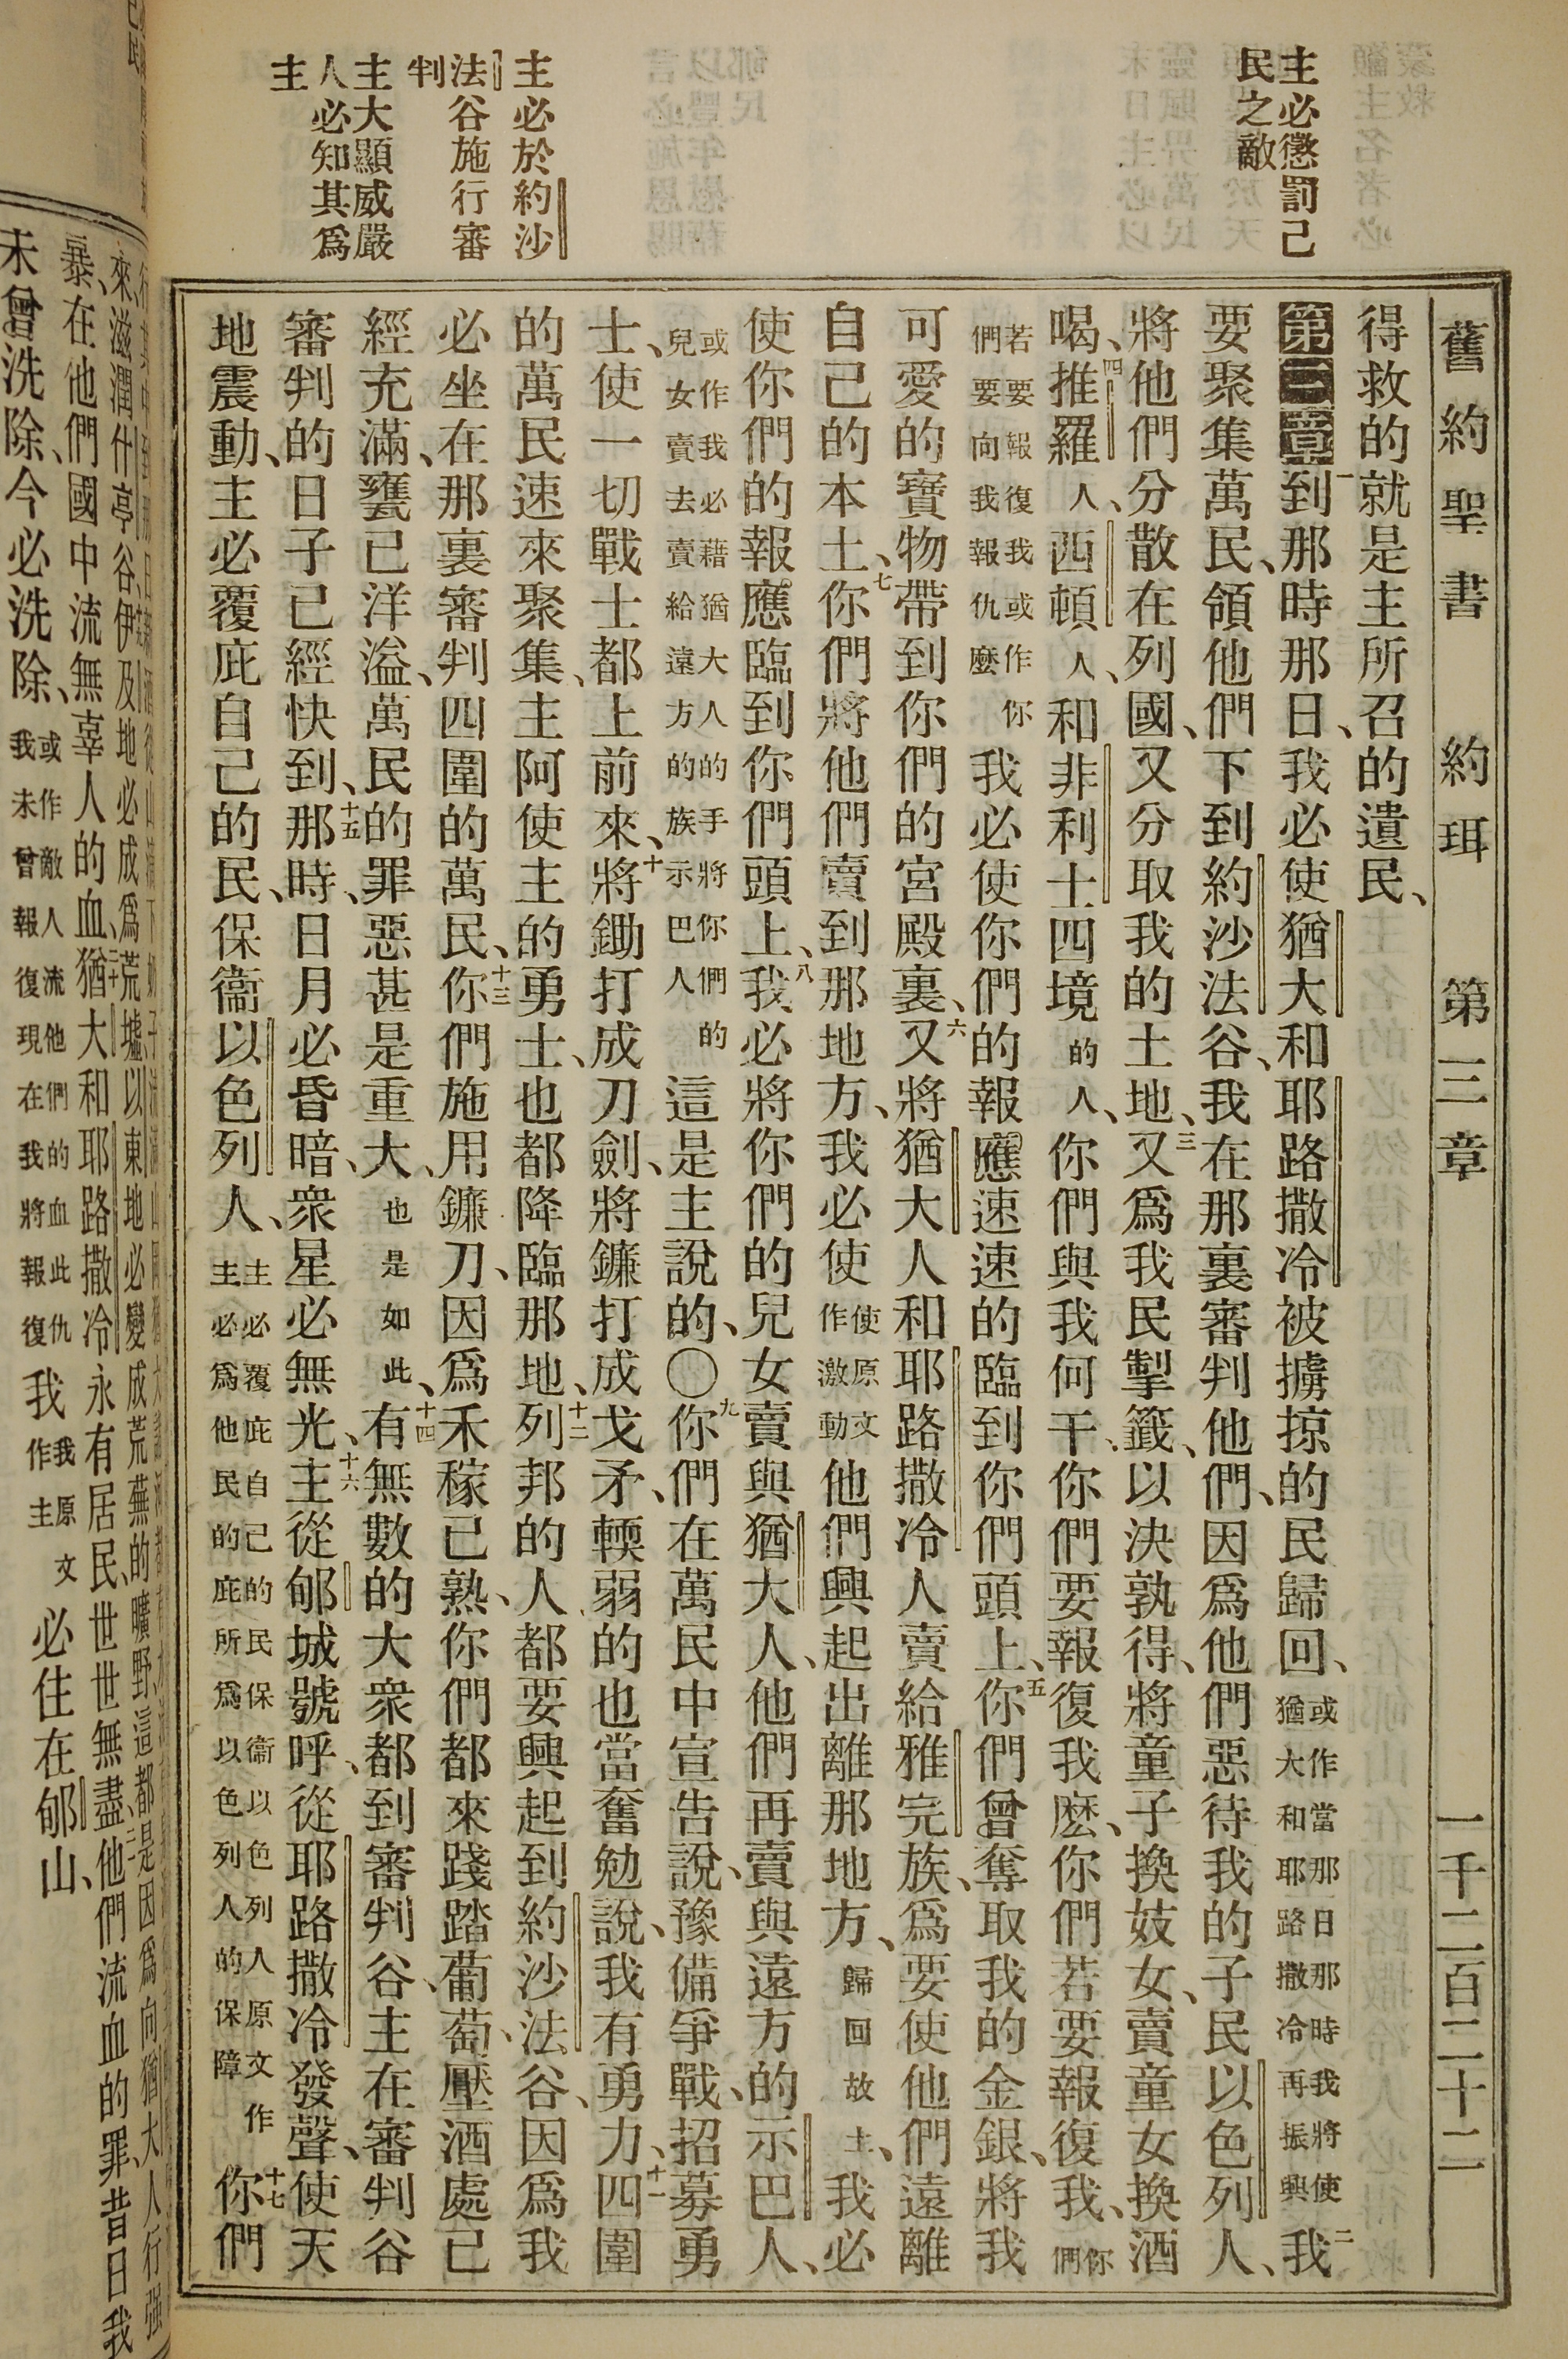 舊約聖書 約珥 第三章 一千二百二十二
主必懲罰己
民之敵
主必於約沙
法谷施行審
判
主大顯威嚴
人必知其爲
主
得救的就是主所召的遺民、
第三章一到那時那日、我必使猶大和耶路撒冷被擄掠的民歸回、或作當那日那時我將使猶大和耶路撒冷再振興二我
要聚集萬民、領他們下到約沙法谷、我在那裏審判他們、因爲他們惡待我的子民以色列人、
將他們分散在列國、又分取我的土地、三又爲我民掣籤、以決孰得、將童子換妓女、賣童女換酒
喝、四推羅人、西頓人、和非利士四境的人、你們與我何干、你們要報復我麽、你們若要報復我、你們
若要報復我或作你們要向我報仇麽我必使你們的報應速速的臨到你們頭上、五你們曾奪取我的金銀、將我
可愛的寶物帶到你們的宮殿裏、六又將猶大人和耶路撒冷人賣給雅完族、爲要使他們遠離
自己的本土、七你們將他們賣到那地方、我必使使原文作激動他們興起出離那地方、歸回故土、我必
使你們的報應臨到你們頭上、八我必將你們的兒女賣與猶大人、他們再賣與遠方的示巴人、
或作我必藉猶大人的手將你們的兒女賣去賣給遠方的族示巴人這是主說的、〇九你們在萬民中宣告說、豫備爭戰、招募勇
士、使一切戰士都上前來、十將鋤打成刀劍、將鐮打成戈矛、輭弱的也當奮勉說、我有勇力、十一四圍
的萬民速來聚集、主阿使主的勇士、也都降臨那地、十二列邦的人都要興起到約沙法谷、因爲我
必坐在那裏審判四圍的萬民、十三你們施用鐮刀、因爲禾稼已熟、你們都來踐踏葡萄、壓酒處已
經充滿、甕已洋溢、萬民的罪惡甚是重大、也是如此、十四有無數的大衆都到審判谷、主在審判谷
審判的日子已經快到、十五那時、日月必昏暗、衆星必無光、十六主從郇城號呼、從耶路撒冷發聲、使天
地震動、主必覆庇自己的民、保衞以色列人、主必覆庇自己的民保衞以色列人原文作主必爲他民的庇所爲以色列人的保障十七你們
暴、在他們國中流無辜人的血、二十猶大和耶路撒冷永有居民、世世無盡、二一他們流血的罪、昔日我
未曾洗除、今必洗除、或作敵人流他們的血此仇我未曾報復現在我將報復我我原文作主必住在郇山、